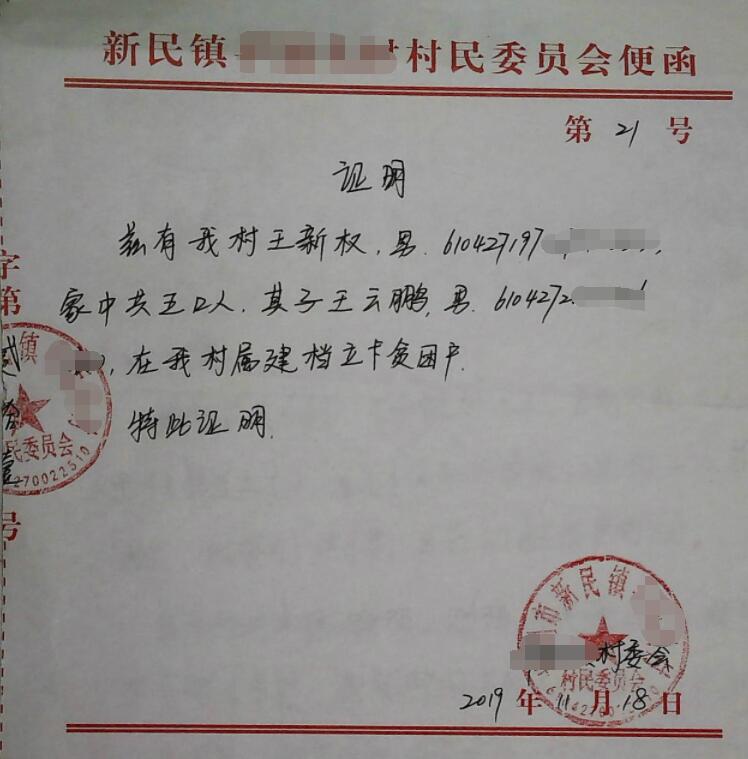 新民镇 村村民委员会便函
第 21 号
证明
兹有我村王新权,男.610427197
家中共五口人,其子王云鹏,男.6104272
,在我村属建档立卡贫困户.
特此证明.
字第
贰拾壹
号
镇
民委员会
270022510
市新民镇
村民委员会
村委会
2019年11月18日